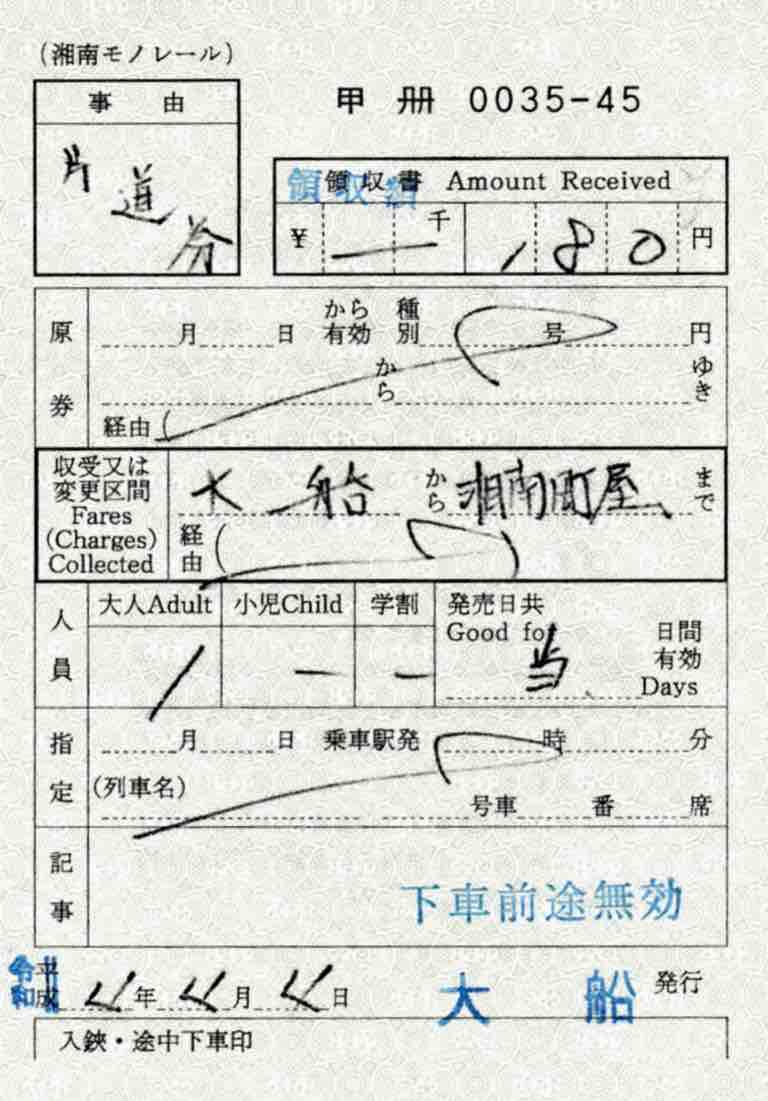 (湘南モノレール)
事由
甲 册 0035-45
片道券
領収額
領収書 Amount Received
¥ 千 180 円
原券
月 日 から有効 種別 号 円
から ゆき
経由
収受又は変更区間 Fares (Charges) Collected
大船 から 湘南町屋 まで
経由
人員
大人Adult 小児Child 学割 発売日共
Good for 当 日間有効 Days
1 ー ー
指定
月 日 乗車駅発 時 分
(列車名)
号車 番 席
記事
下車前途無効
平成 令和 4年4月4日 大船 発行
入鋏・途中下車印